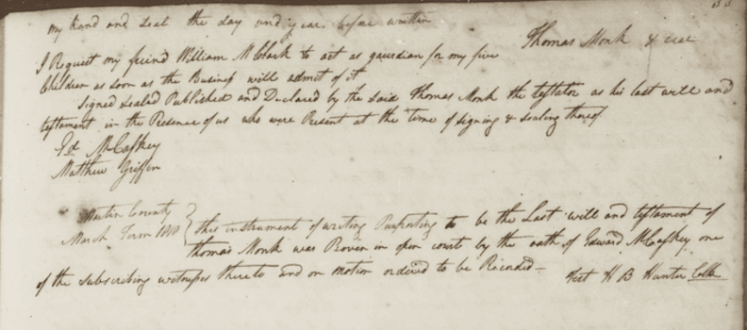 my hand and seal the day and year before written
Thomas Monk & seal
I Request my friend William McClark to act as gaurdian for my five
Children as soon as the Business will admit of it
Signed Sealed Published and Declared by the said Thomas Monk the testator as his last will and
testament in the Presence of us who were Present at the time of signing & sealing thereof
Ed McCaskey
Matthew Griffin
Martin County
March Term 1810
this instrument of writing Purporting to be the Last will and testament of
Thomas Monk was Proven in open court by the oath of Edward McCaskey one
of the subscribing witnesses thereto and on motion ordered to be Recorded –
Test H B Hunter